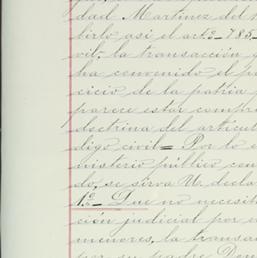 dad Martinez del
birlo asi el artº 785
vil; la transacción y
ha convenido el p
cicio de la patria p
parece estar compr
doctrina del artícul
digo civil= Por lo e
nisterio público con
do, se sirva U. decla
1º- Que no necesit
ción judicial por e
menores, la transa
por su padre Don